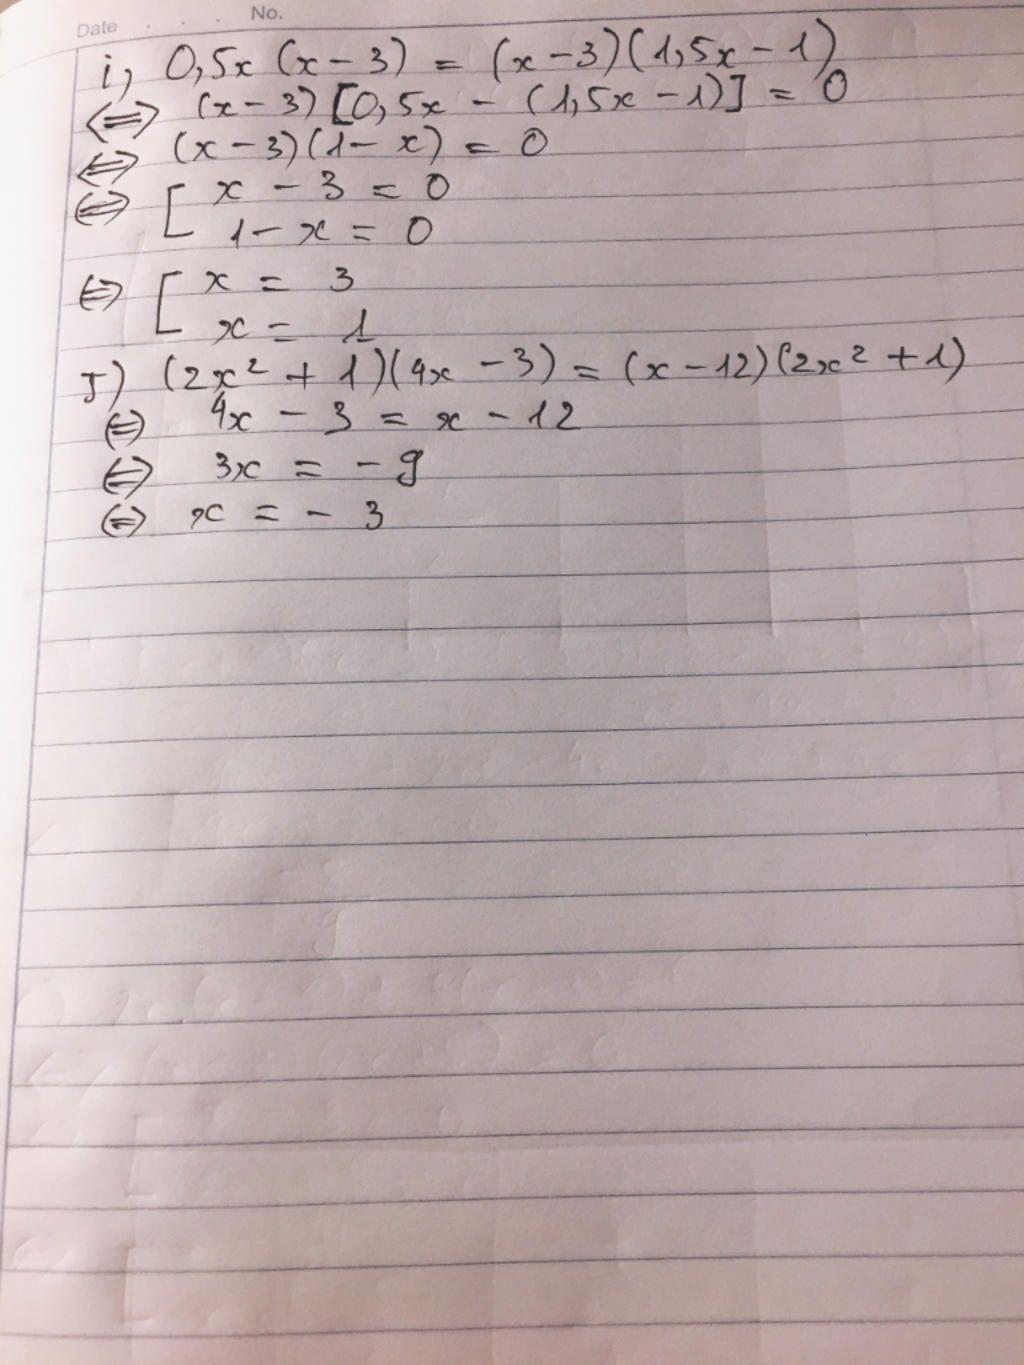 Date . . . No.
i, 0,5x (x - 3) = (x - 3)(1,5x - 1)
⇔ (x - 3) [0,5x - (1,5x - 1)] = 0
⇔ (x - 3)(1 - x) = 0
⇔ [ x - 3 = 0
1 - x = 0
⇔ [ x = 3
x = 1
J) (2x² + 1)(4x - 3) = (x - 12)(2x² + 1)
⇔ 4x - 3 = x - 12
⇔ 3x = - 9
⇔ x = - 3